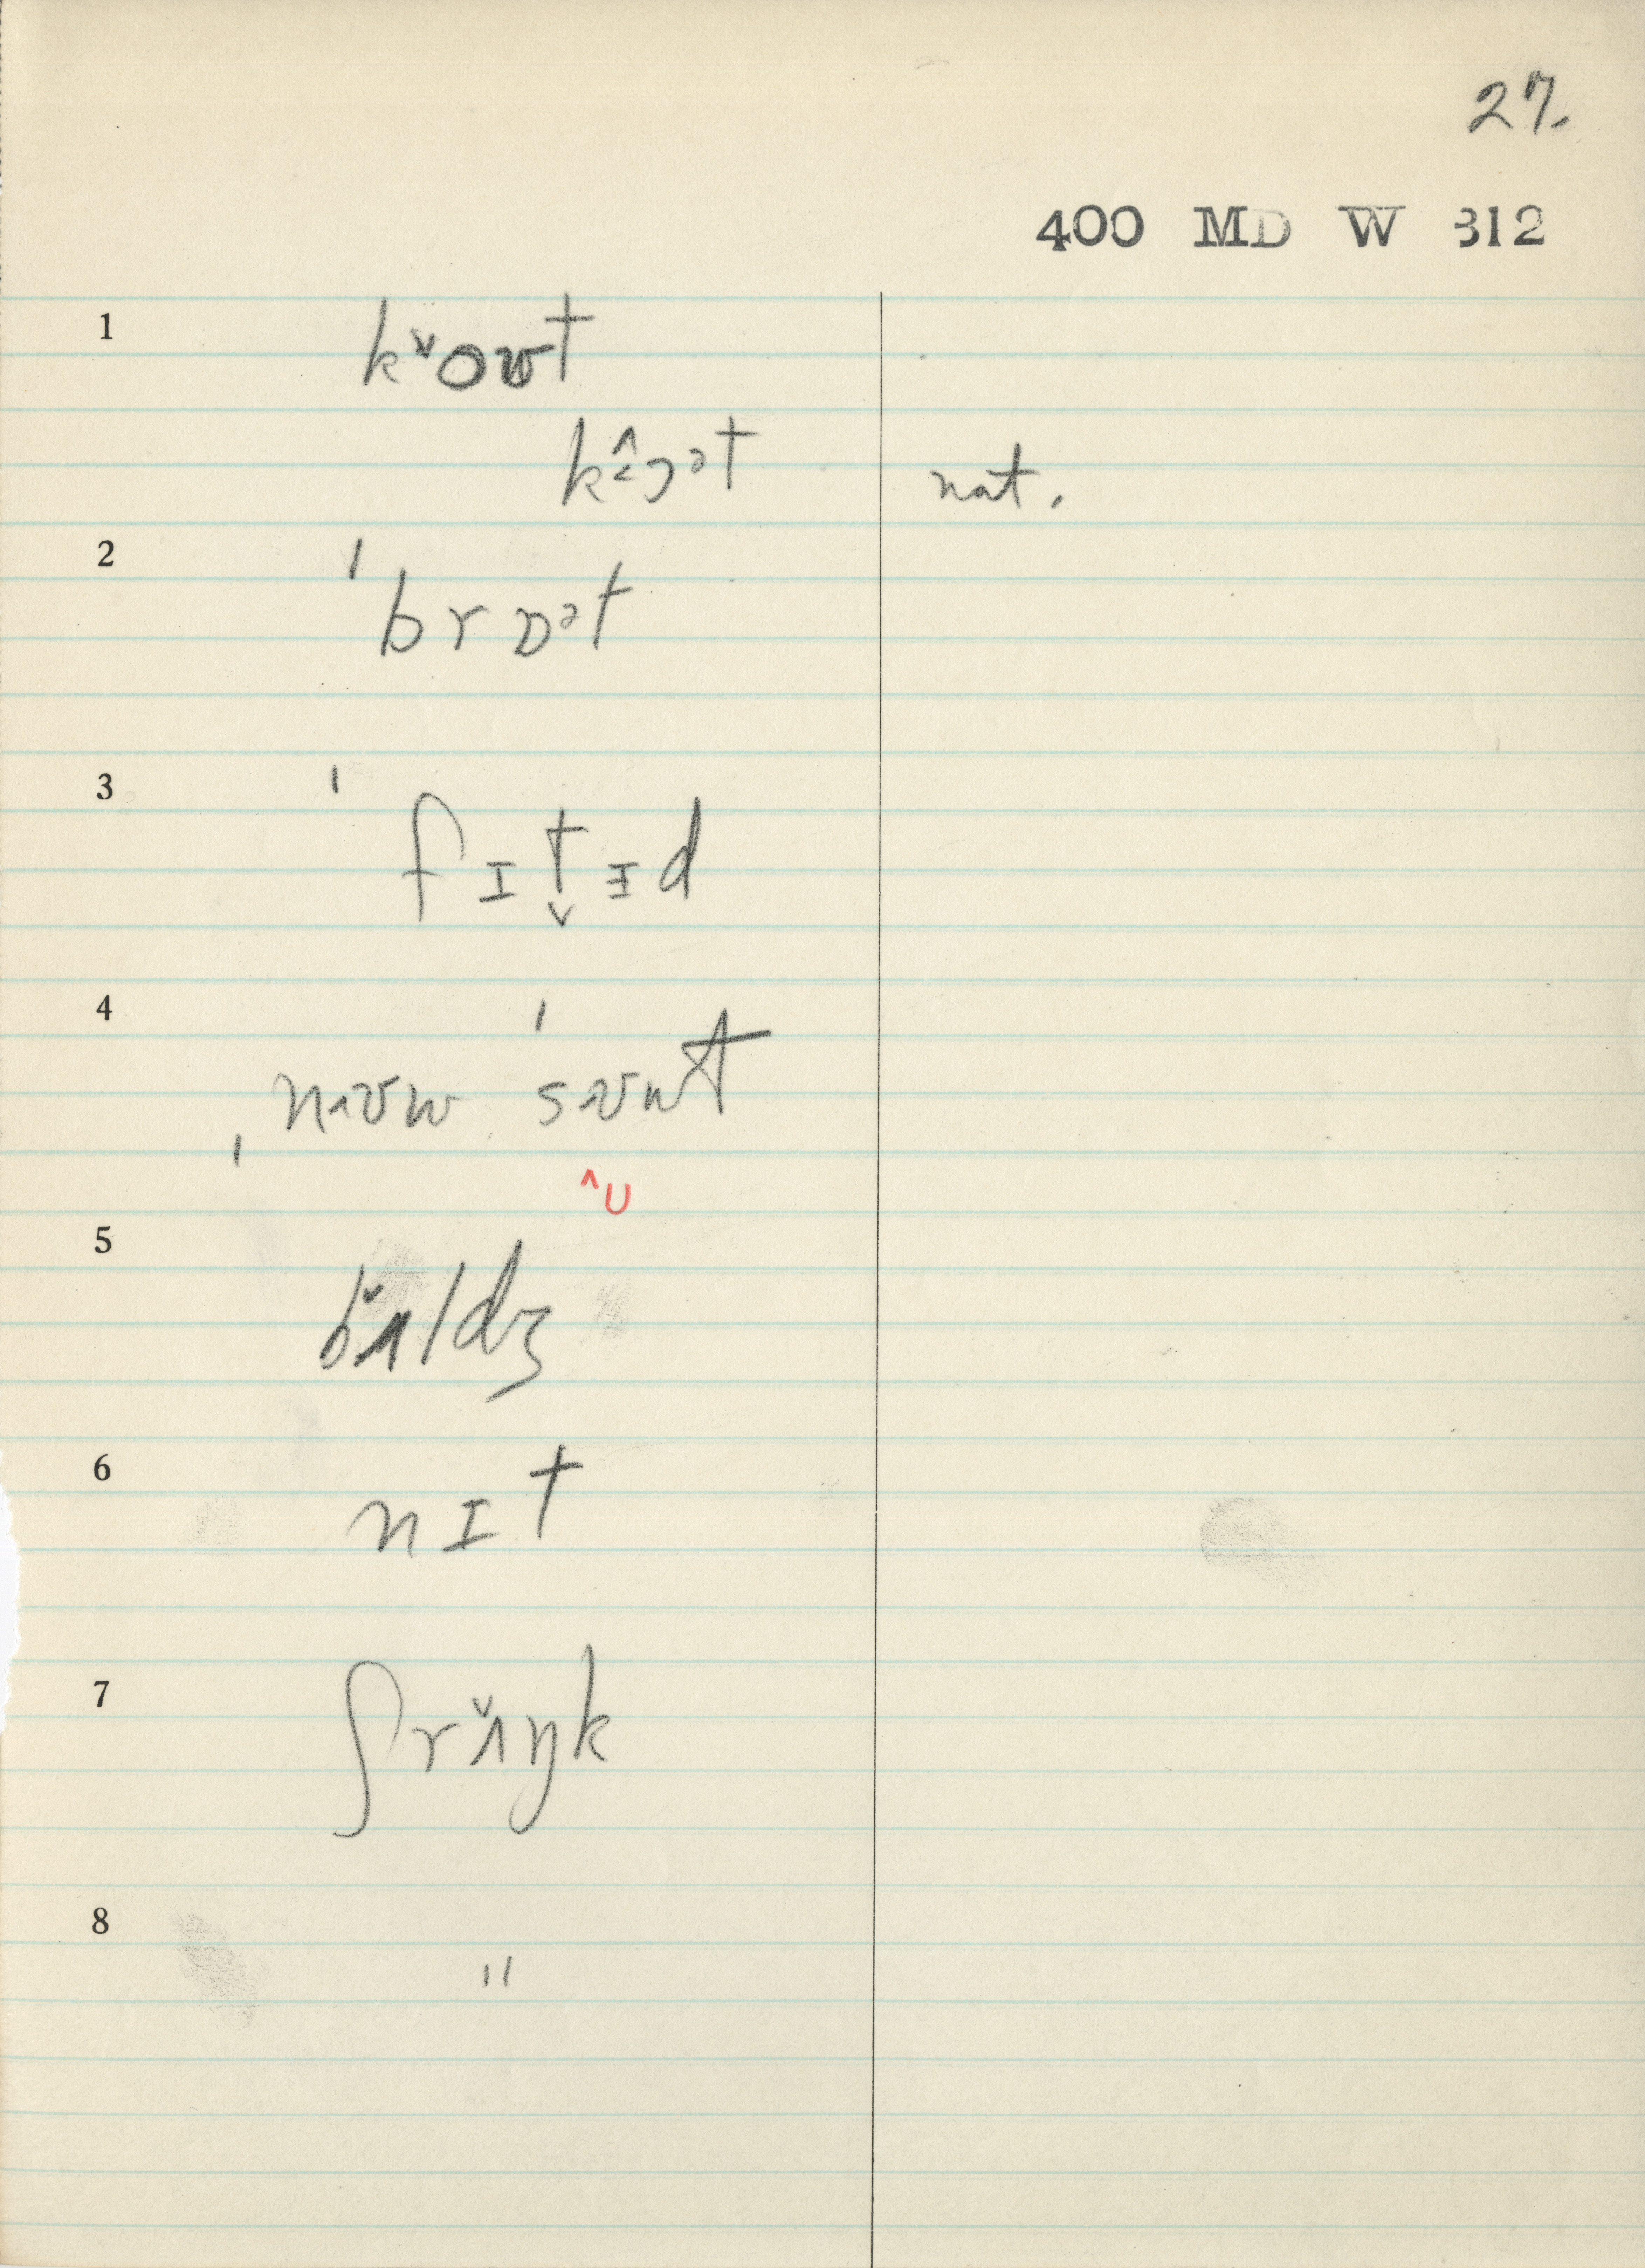 27.
400 MD W 312
1 kˇoʊt
k<̂ɔᵊt nat.
2 ˈbrɒᵊt
3 ˈfɪt̬ɪ̵d
4 ˌnɪʊw ˈsɪʊwt
^U
5 bʌ̌ldʒ
6 nɪt
7 ʃrʌ̌ŋk
8 "